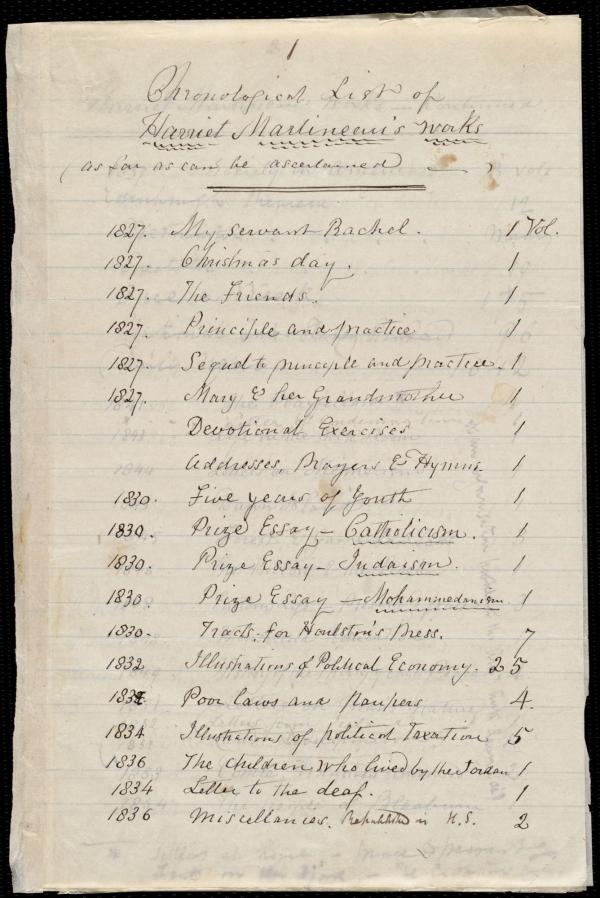 1
Chronological List of
Harriet Martineau's works
(as far as can be ascertained — )
1827. My servant Rachel. 1 Vol.
1827. Christmas day. 1
1827. The Friends. 1
1827. Principle and practice 1
1827. Sequel to principle and practice. 1
1827. Mary & her Grandmother 1
Devotional Exercises 1
Addresses, Prayers & Hymns. 1
1830. Five years of Youth 1
1830. Prize Essay – Catholicism. 1
1830. Prize Essay – Judaism. 1
1830. Prize Essay – Mohammedanism 1
1830. Tracts for Houlston's Press. 7
1832 Illustrations of Political Economy. 25
183 Poor laws and paupers 4.
1834 Illustrations of political Taxation 5
1836 The children who lived by the Jordan 1
1834 Letter to the deaf. 1
1836 Miscellanies. Republished in U.S. 2